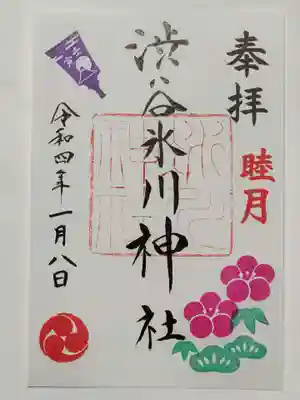 奉拝
睦月
渋谷氷川神社
令和四年一月八日